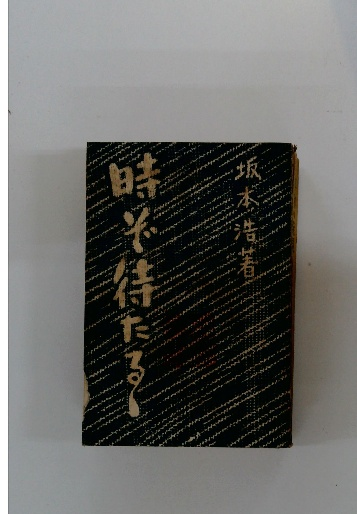 坂本浩著
時ぞ待たるゝ